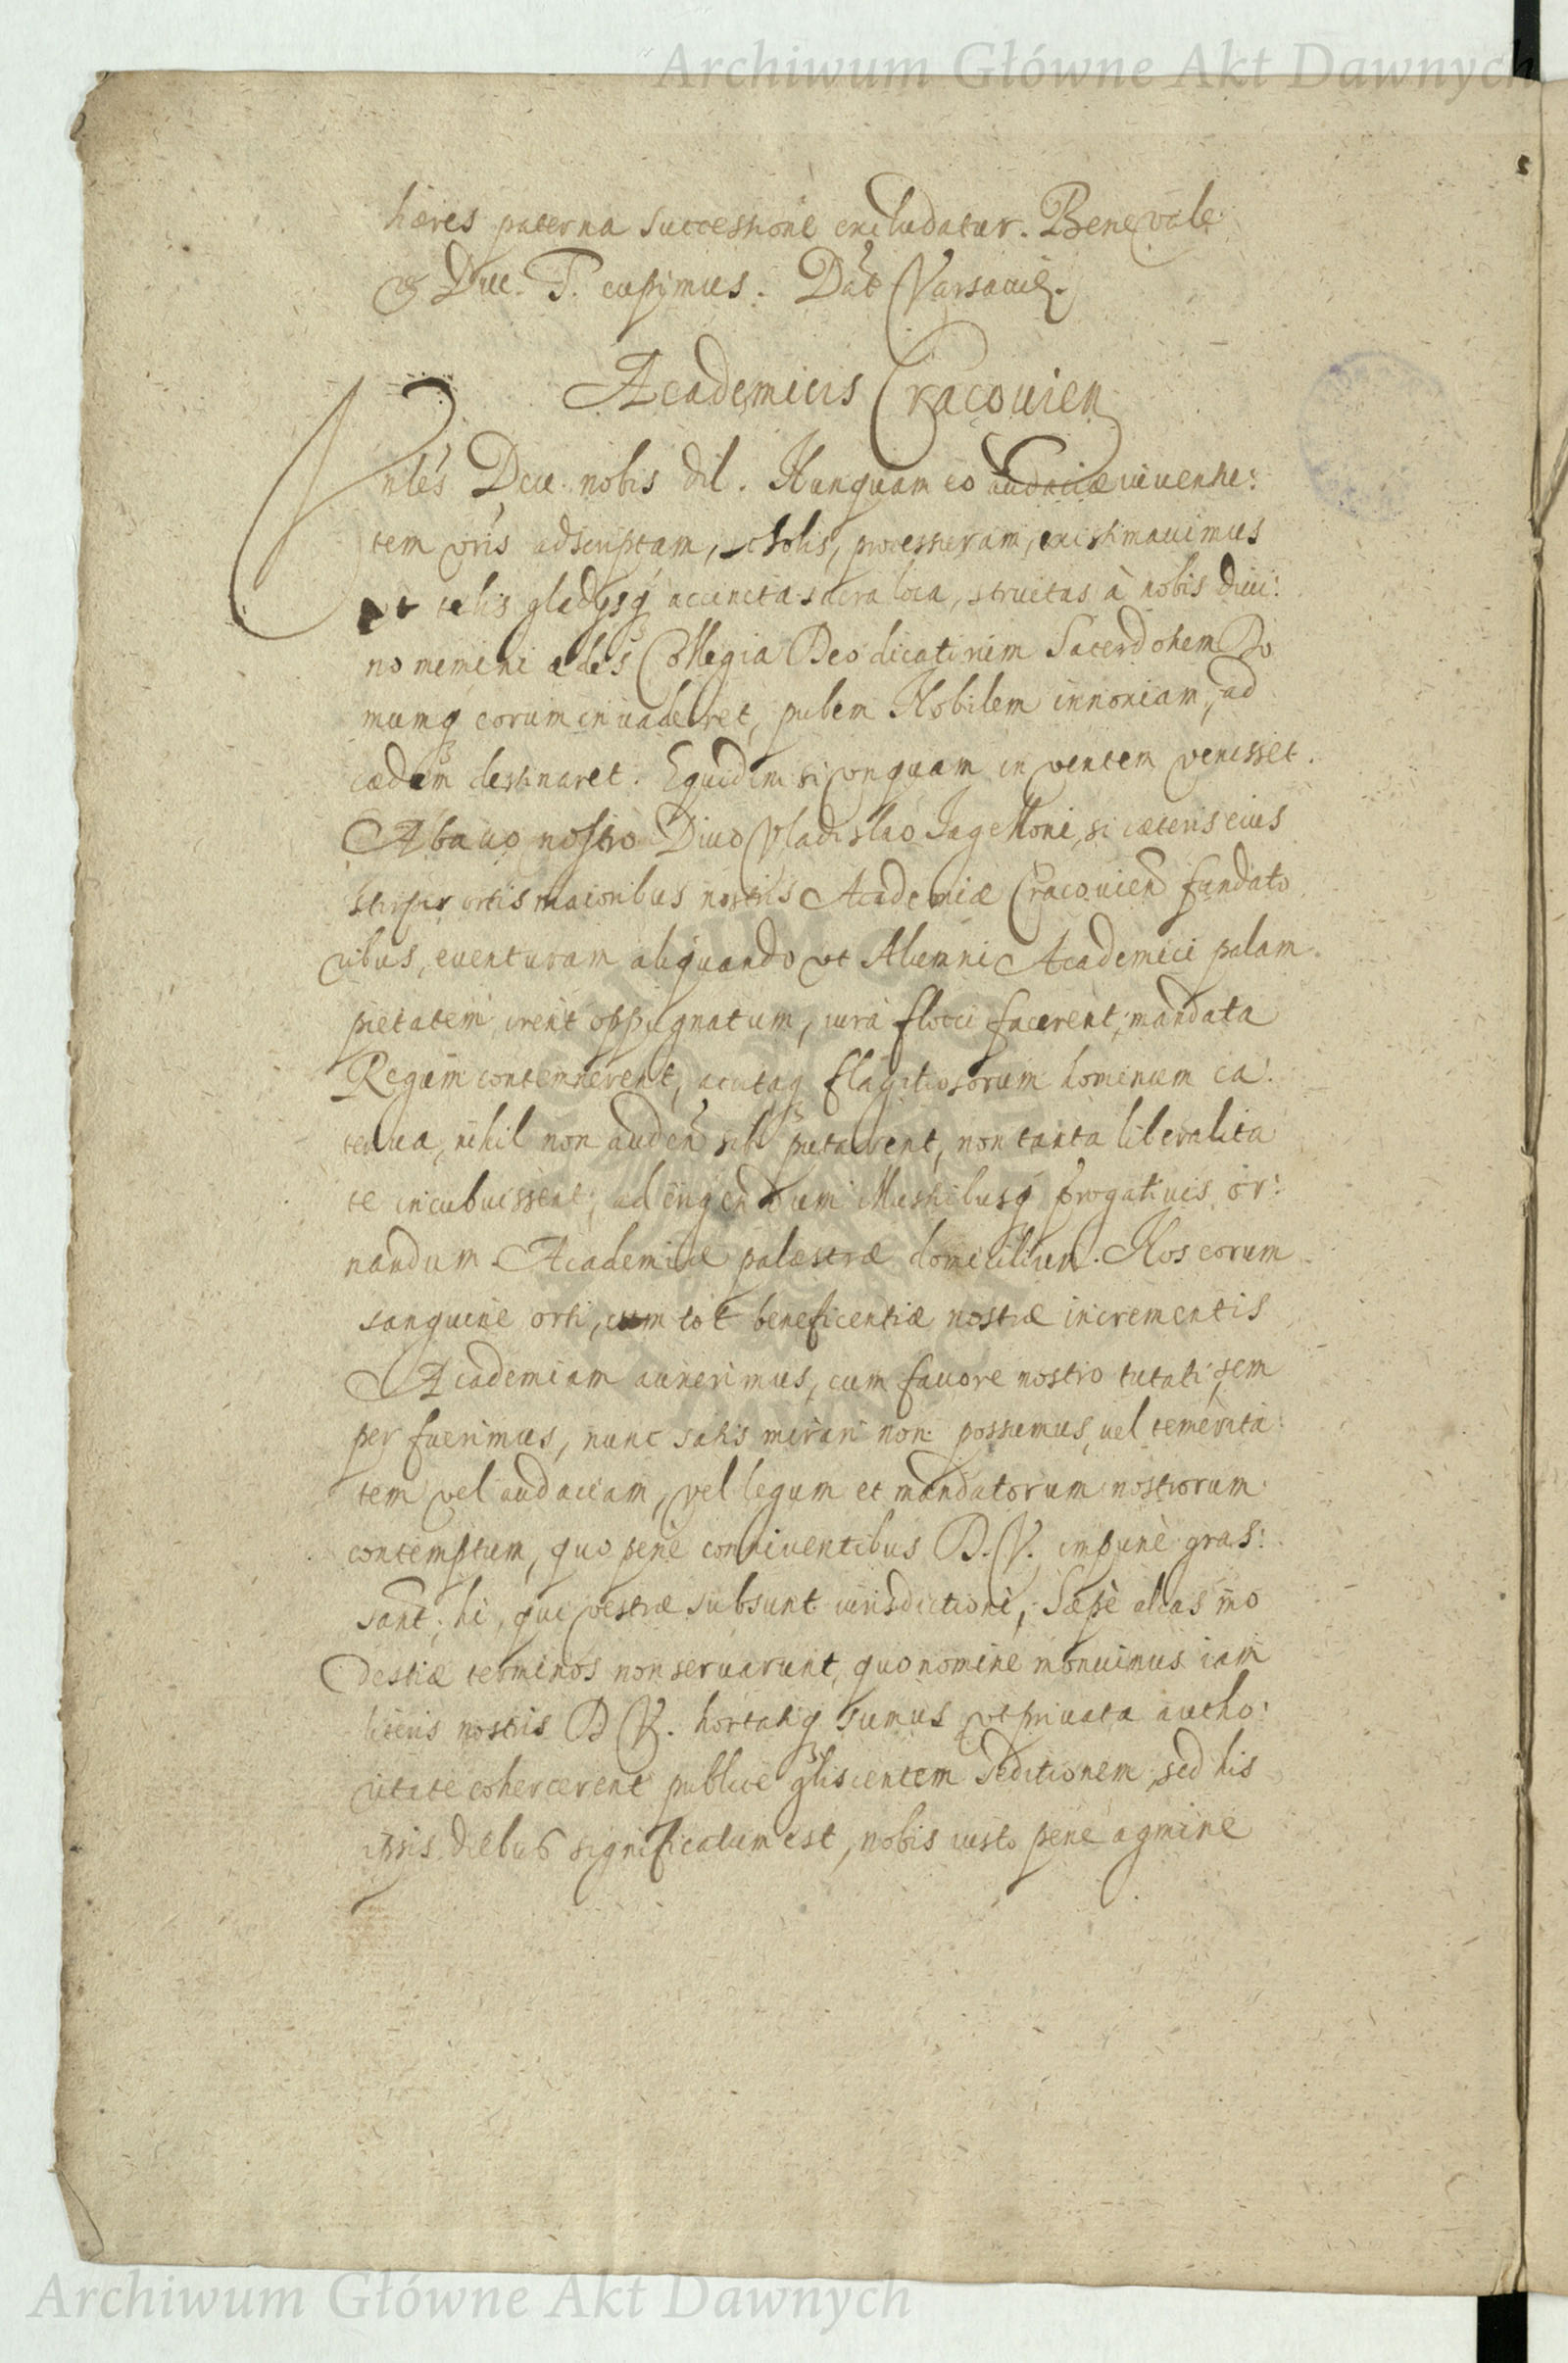 Archiwum Główne Akt Dawnych
hæres paterna successione excludatur. Bene vale
Duc. T. cupimus. Dat Varsauiæ.
Academicis Cracouien
Deu. nobis dil. Nunquam eo audaciæ iuuentu:
tem vr̃is adscriptam, scholis, processuram, existimauimus
ut telis gladijsq accincta sacra loca, structas à nobis diui:
no nemini ædes Collegia Deo dicatorum Sacerdotum Do
mumq eorum inuaderet, pubem Nobilem innoxiam, ad
cædem destinaret. Equidem si vnquam in ventem venisset.
Abauo nostro Diuo Vladislao Jagelloni, si cæteris eius
stirpis ortis maioribus nostris Academiæ Cracouien fundato
ribus, euenturam aliquando vt Alumni Academici palam
pietatem irent oppugnatum, iura flocci facerent, mandata
Regum contemnerent, acutaq flagitiosorum hominum ca:
terua, nihil non auden sibi putarent, non tanta liberalita
te incubuissent, ad erigendum illustribusq prrogatiuis or:
nandum Academiæ palæstræ domicilium. Nos eorum
sanguine orti, cum tot beneficentiæ nostræ incrementis
Academiam auxerimus, cum fauore nostro tutati sem
per fuerimus, nunc satis mirari non possumus, vel temerita:
tem vel audaciam, vel legum et mandatorum nostrorum
contemptum, quo penè conniuentibus D. V. impunè gras:
sant, hi, qui vestræ subsunt iurisdictioni, Sæpè alias mo
destiæ terminos non seruarunt, quo nomine monuimus iam
literis nostris D V. hortatiq sumus vt priuata autho:
ritate cohercerent publice gliscentem seditionem, sed his
ipsis diebus significatum est, nobis iusto penè agmine
Archiwum Główne Akt Dawnych